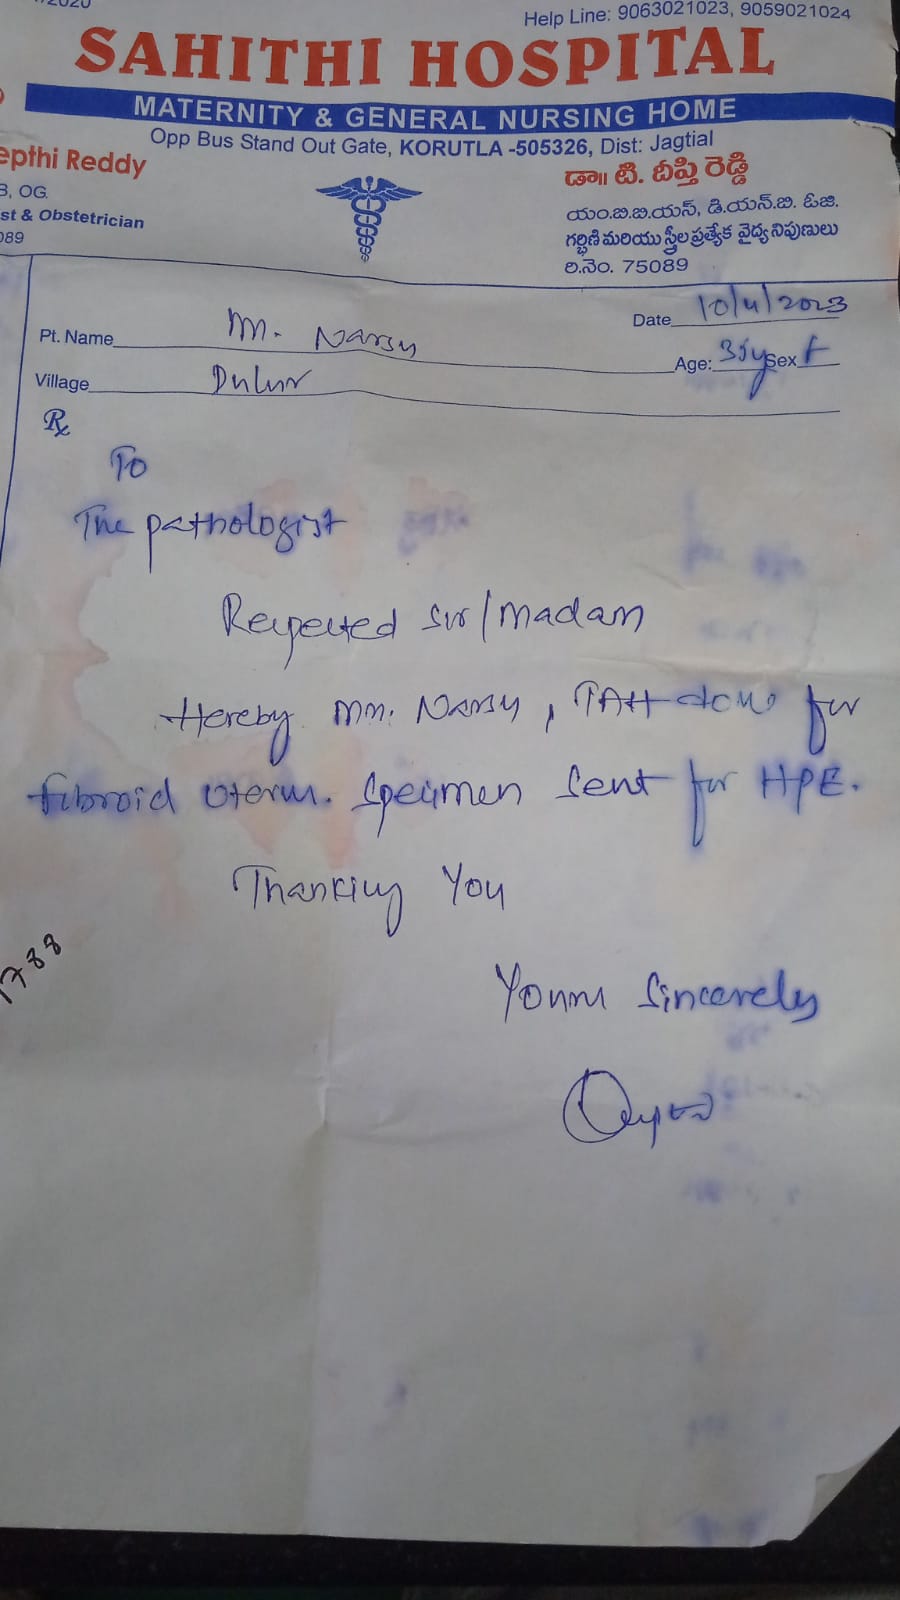 /2020
Help Line: 9063021023, 9059021024
SAHITHI HOSPITAL
MATERNITY & GENERAL NURSING HOME
Opp Bus Stand Out Gate, KORUTLA -505326, Dist: Jagtial
epthi Reddy
B, OG.
st & Obstetrician
089
డా॥ టి. దీప్తి రెడ్డి
యం.బి.బి.యస్, డి.యన్.బి. ఓ.జి.
గర్భిణి మరియు స్త్రీల ప్రత్యేక వైద్య నిపుణులు
రి.నెం. 75089
Pt. Name M.
Date 10/4/2023
Village
Age: 35y Sex f
Rx
To
The pathologist
Respected Sir/Madam
Hereby Mrs. , TAH done for
fibroid uterus. Specimen Sent for HPE.
Thanking You
Yours Sincerely
1788